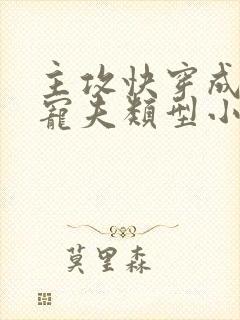 主攻快穿成
寵夫類型小
莫里森